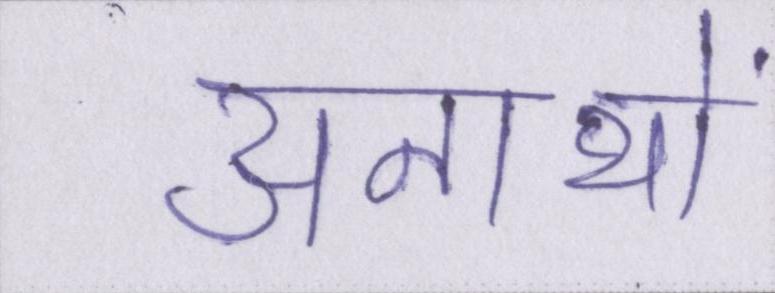 अनाथों